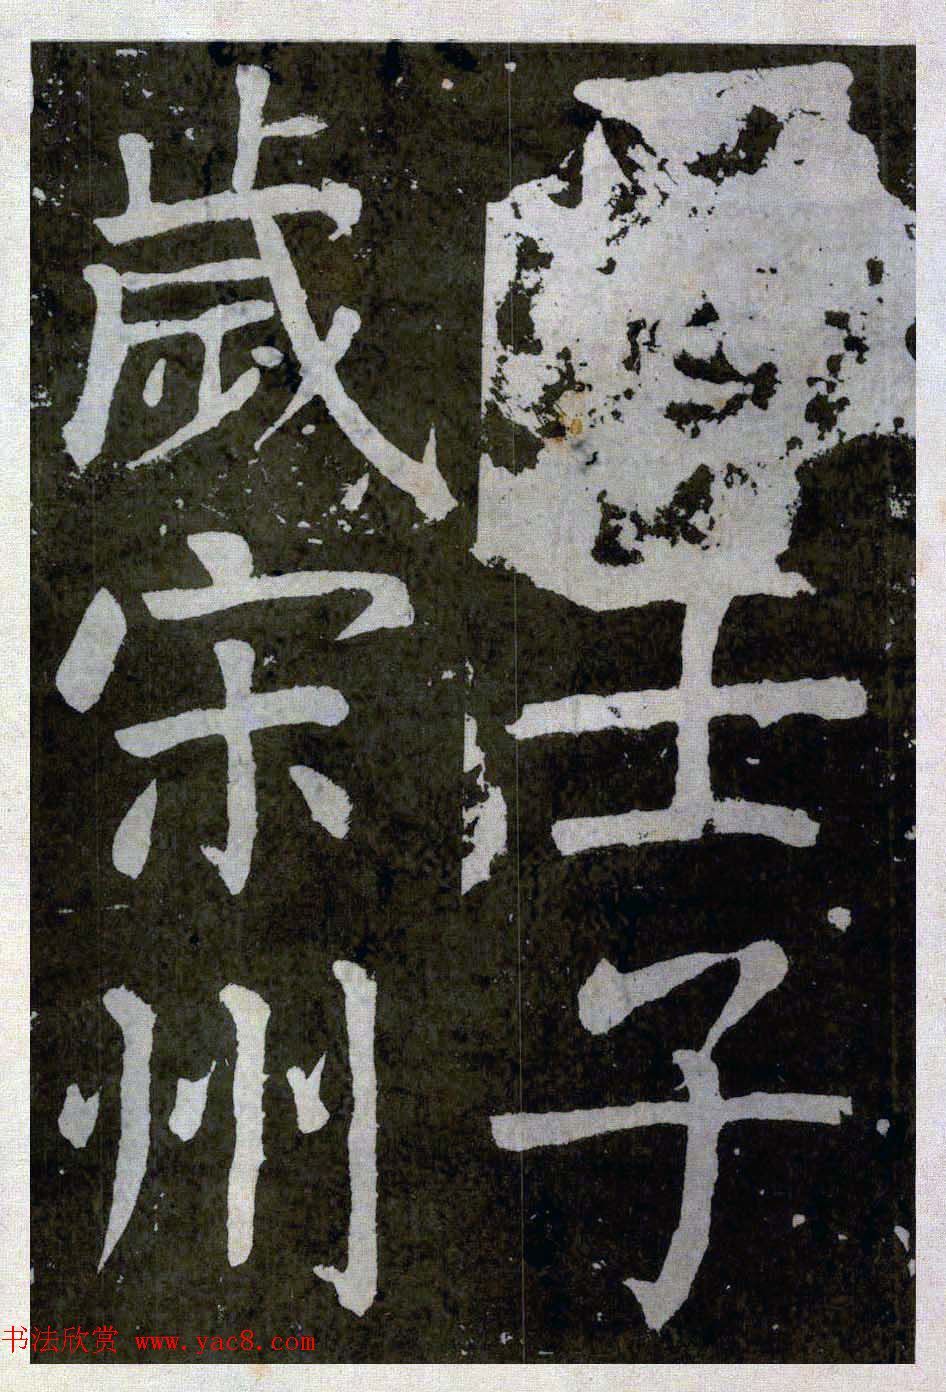 壬子
歲宋州
书法欣赏 www.yac8.com